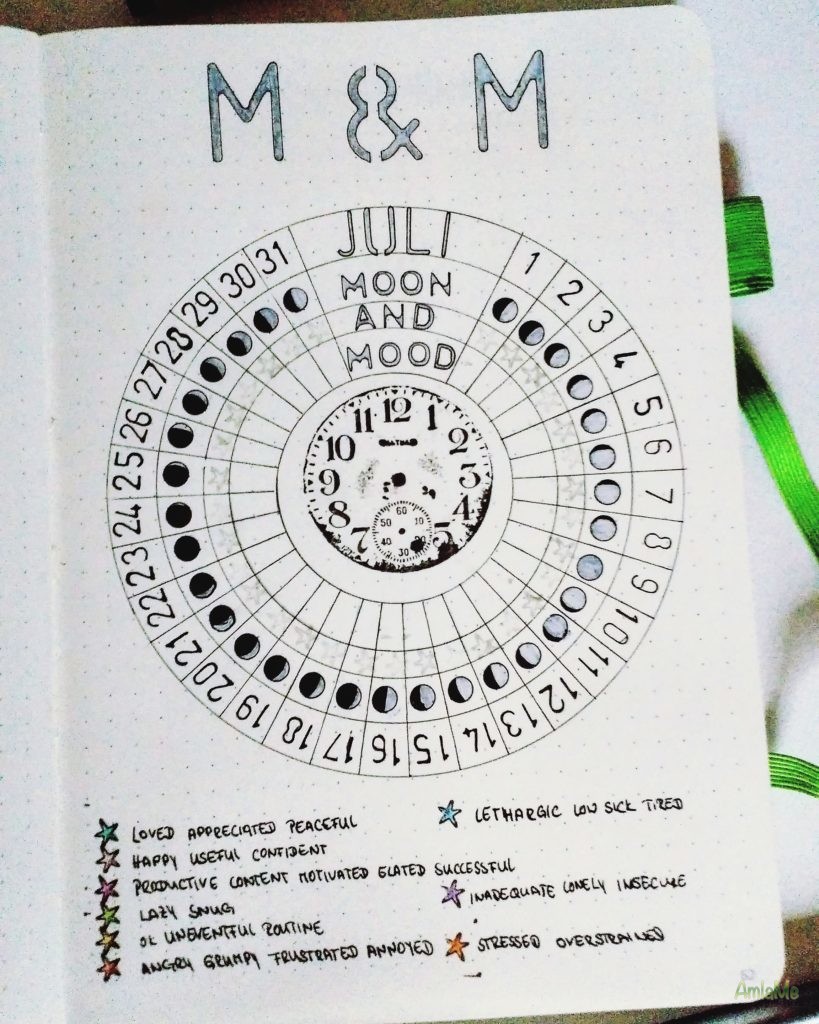 M & M
JULI
MOON
AND
MOOD
1
2
3
4
5
6
7
8
9
10
11
12
13
14
15
16
17
18
19
20
21
22
23
24
25
26
27
28
29
30
31
12
1
2
3
4
5
7
8
9
10
11
60
10
30
40
50
LOVED APPRECIATED PEACEFUL
HAPPY USEFUL CONFIDENT
PRODUCTIVE CONTENT MOTIVATED ELATED SUCCESSFUL
LAZY SNUG
OK UNEVENTFUL ROUTINE
ANGRY GRUMPY FRUSTRATED ANNOYED
LETHARGIC LOW SICK TIRED
INADEQUATE LONELY INSECURE
STRESSED OVERSTRAINED
AmieMe